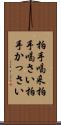 拍手喝采拍
手喝さい拍
手かっさい